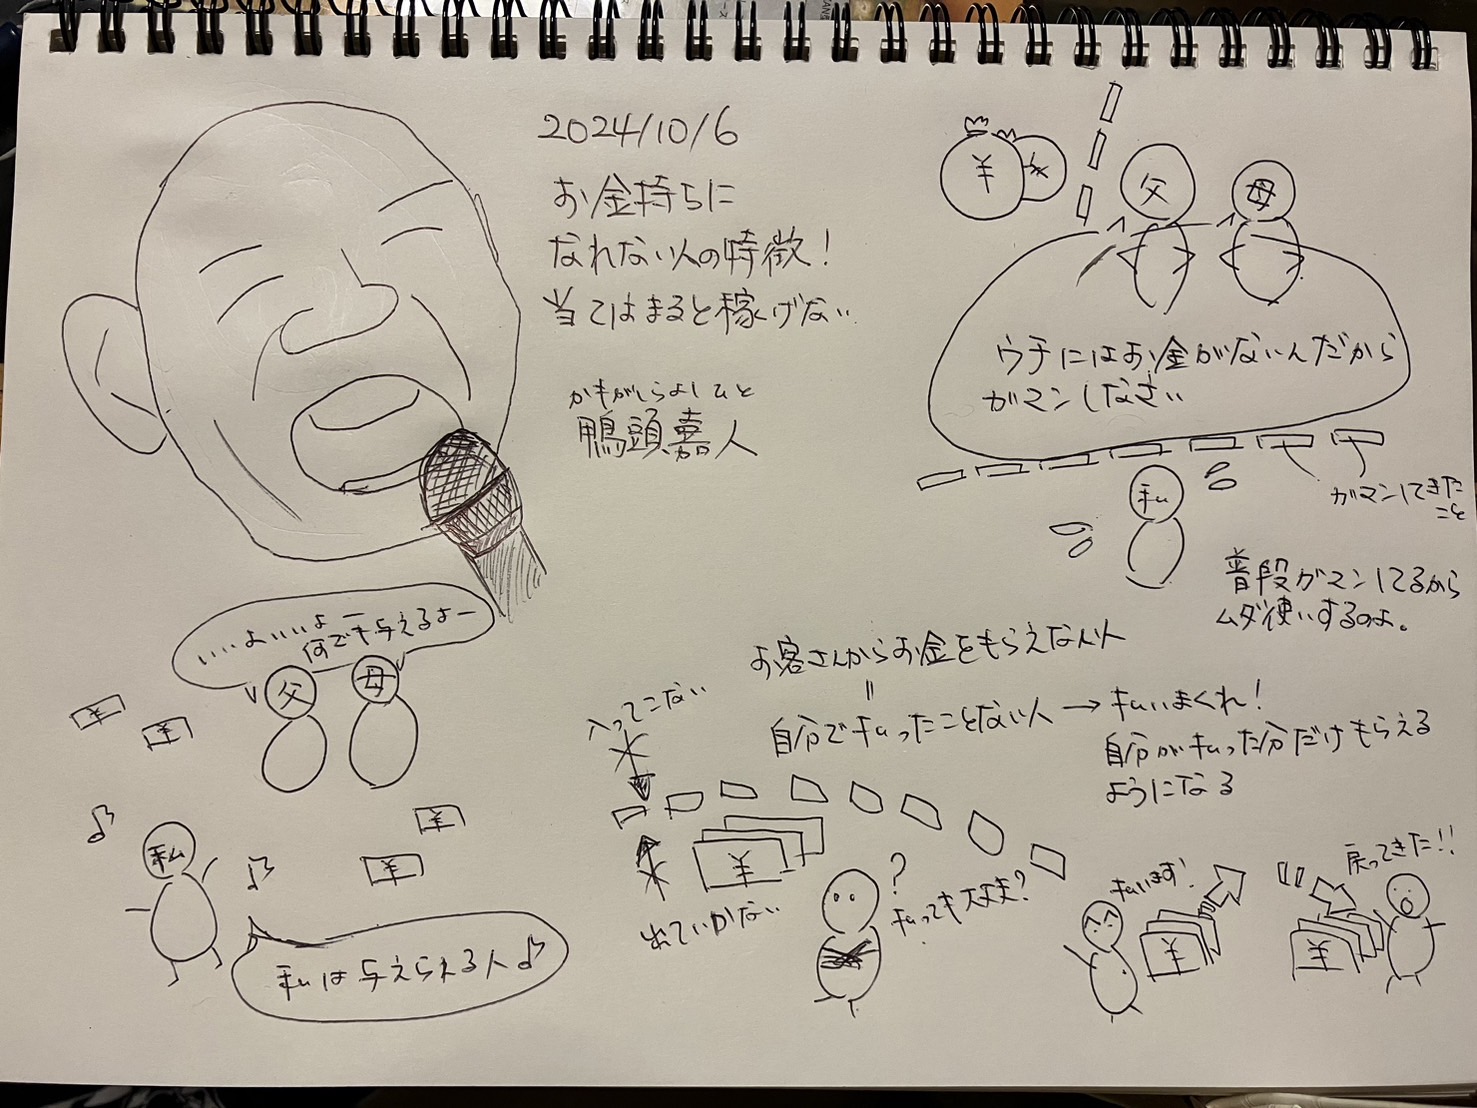 2024/10/6
お金持ちに
なれない人の特徴!
当てはまると稼げない
かもがしらよしひと
鴨頭嘉人
¥
¥
父
母
ウチにはお金がないんだから
ガマンしなさい
私
ガマンしてきた
こと
普段ガマンしてるから
ムダ使いするのよ。
いいよいいよー
何でも与えるよー
父
母
¥
¥
¥
¥
私
私は与えられる人♪
お客さんからお金をもらえない人
=
自分で払ったことない人→払いまくれ!
自分が払った分だけもらえる
ようになる
入ってこない
¥
出ていかない
?
払っても大丈夫?
払います!
¥
戻ってきた!!
¥